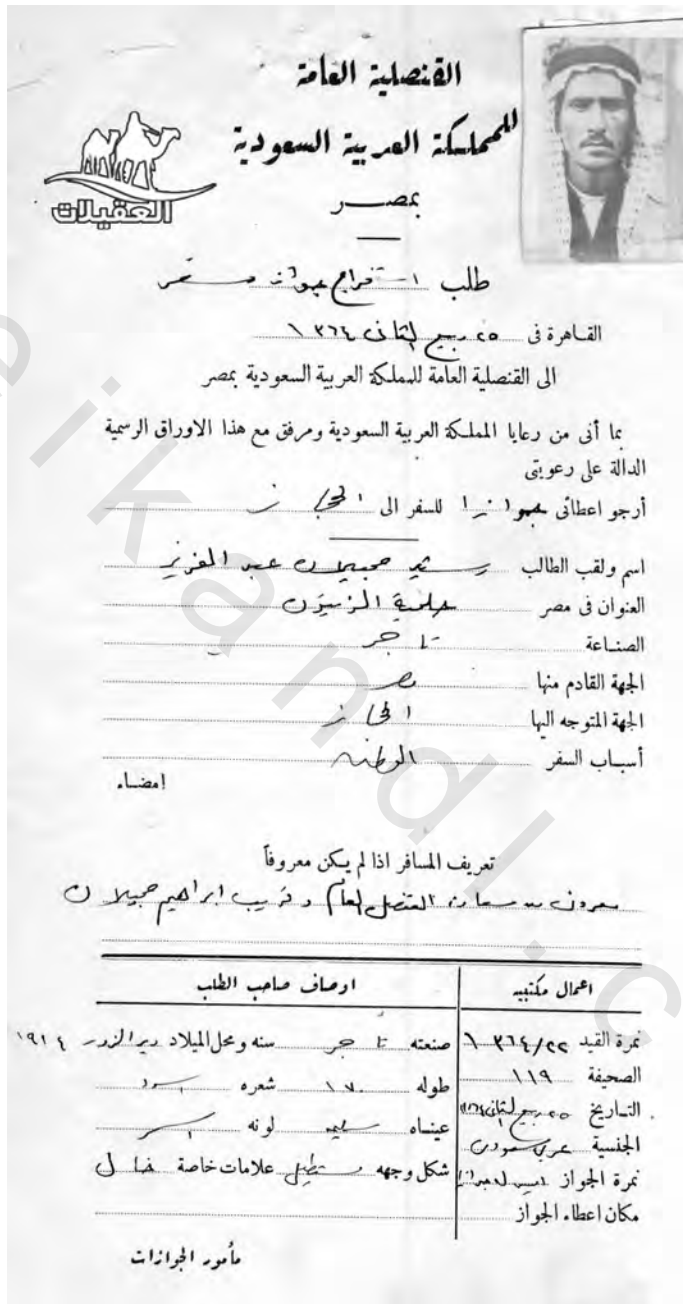 القنصلية العامة
للمملكة العربية السعودية
بمصر
العقيلات
طلب استخراج جواز سفر
القاهرة فى ٢٥ ربيع الثانى ١٣٦٤
الى القنصلية العامة للمملكة العربية السعودية بمصر
بما أنى من رعايا المملكة العربية السعودية ومرفق مع هذا الاوراق الرسمية
الدالة على رعويتى
أرجو اعطائى جوازا للسفر الى الحجاز
اسم ولقب الطالب رشيد عبد العزيز
العنوان فى مصر حلمية الزيتون
الصناعة تاجر
الجهة القادم منها مصر
الجهة المتوجه اليها الحجاز
أسباب السفر الوطن
امضاء
تعريف المسافر اذا لم يكن معروفاً
معروف من سعادة القنصل العام وقريب ابراهيم
اعمال مكتبيه
اوصاف صاحب الطلب
نمرة القيد ١٣٦٤/٢٢
صنعته تاجر سنه ومحل الميلاد دير الزور ١٩١٤
الصحيفة ١١٩
طوله ١٧٠ شعره اسود
التاريخ ٢٥ ربيع الثانى
عيناه لونه اسمر
الجنسية عربى سعودى
شكل وجهه مستطيل علامات خاصة خال
نمرة الجواز
مكان اعطاء الجواز
مأمور الجوازات
eikandl.c